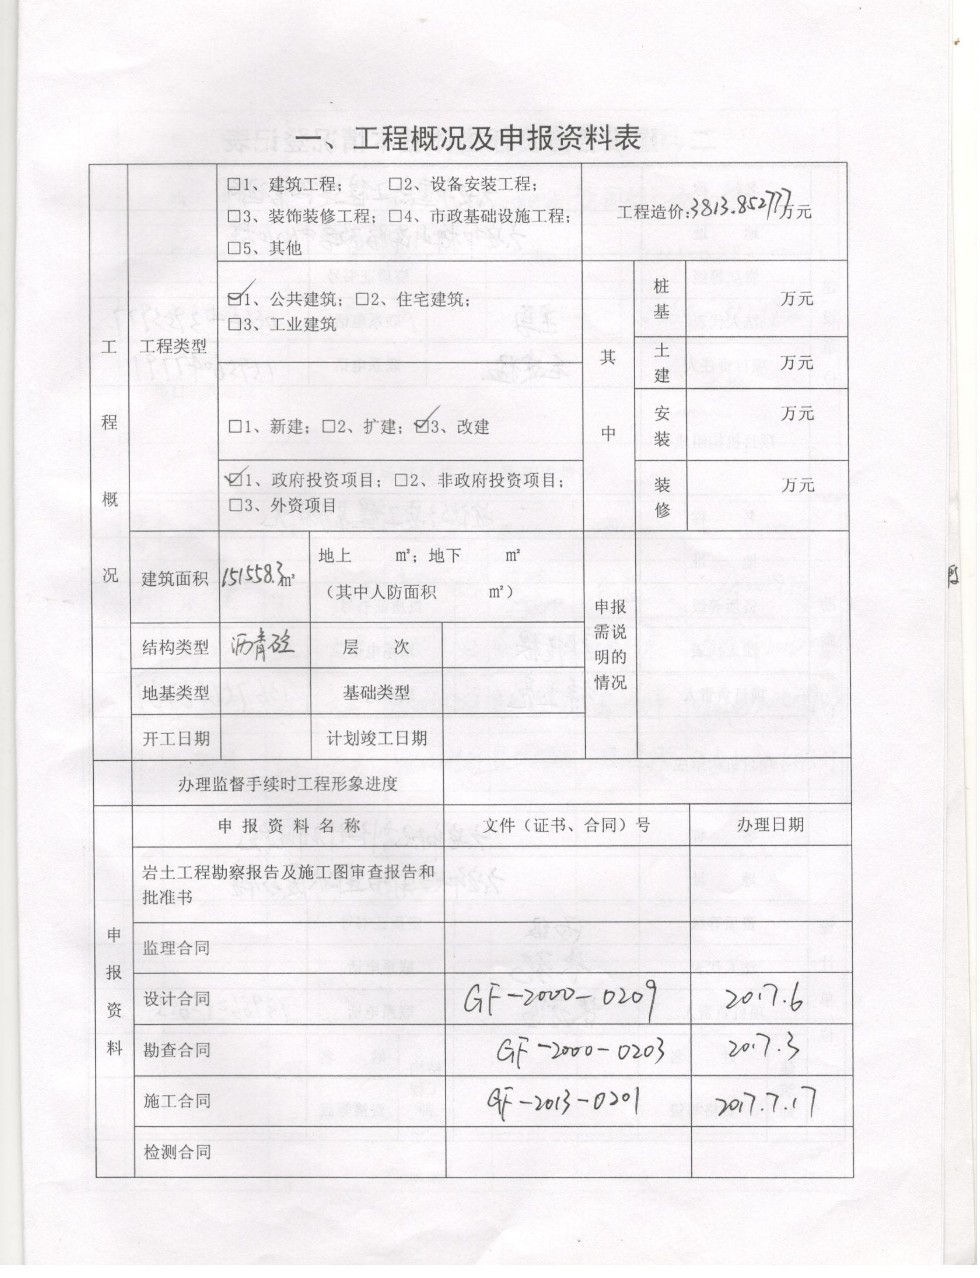 一、工程概况及申报资料表
工程概况
工程类型
□1、建筑工程； □2、设备安装工程；
□3、装饰装修工程；□4、市政基础设施工程；
□5、其他
工程造价:3813.852777万元
☑1、公共建筑；□2、住宅建筑；
□3、工业建筑
□1、新建；□2、扩建；☑3、改建
☑1、政府投资项目；□2、非政府投资项目；
□3、外资项目
其中
桩基 万元
土建 万元
安装 万元
装修 万元
建筑面积 151558.3㎡
地上 ㎡；地下 ㎡
（其中人防面积 ㎡）
申报
需说
明的
情况
结构类型 沥青砼 层 次
地基类型 基础类型
开工日期 计划竣工日期
办理监督手续时工程形象进度
申报资料
申 报 资 料 名 称 文件（证书、合同）号 办理日期
岩土工程勘察报告及施工图审查报告和
批准书
监理合同
设计合同 GF-2000-0209 2017.6
勘查合同 GF-2000-0203 2017.3
施工合同 GF-2013-0201 2017.7.17
检测合同